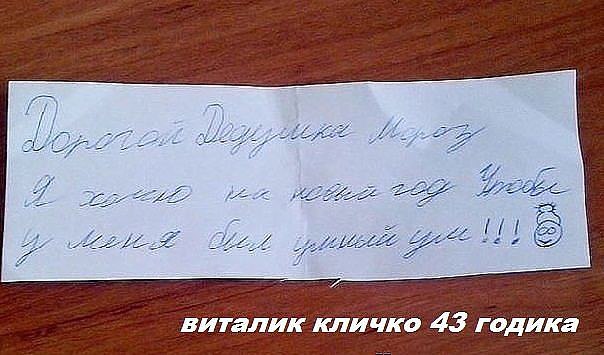 Дорогой Дедушка Мороз
Я хочю на новый год Чтобы
у меня был умный ум!!!
виталик кличко 43 годика